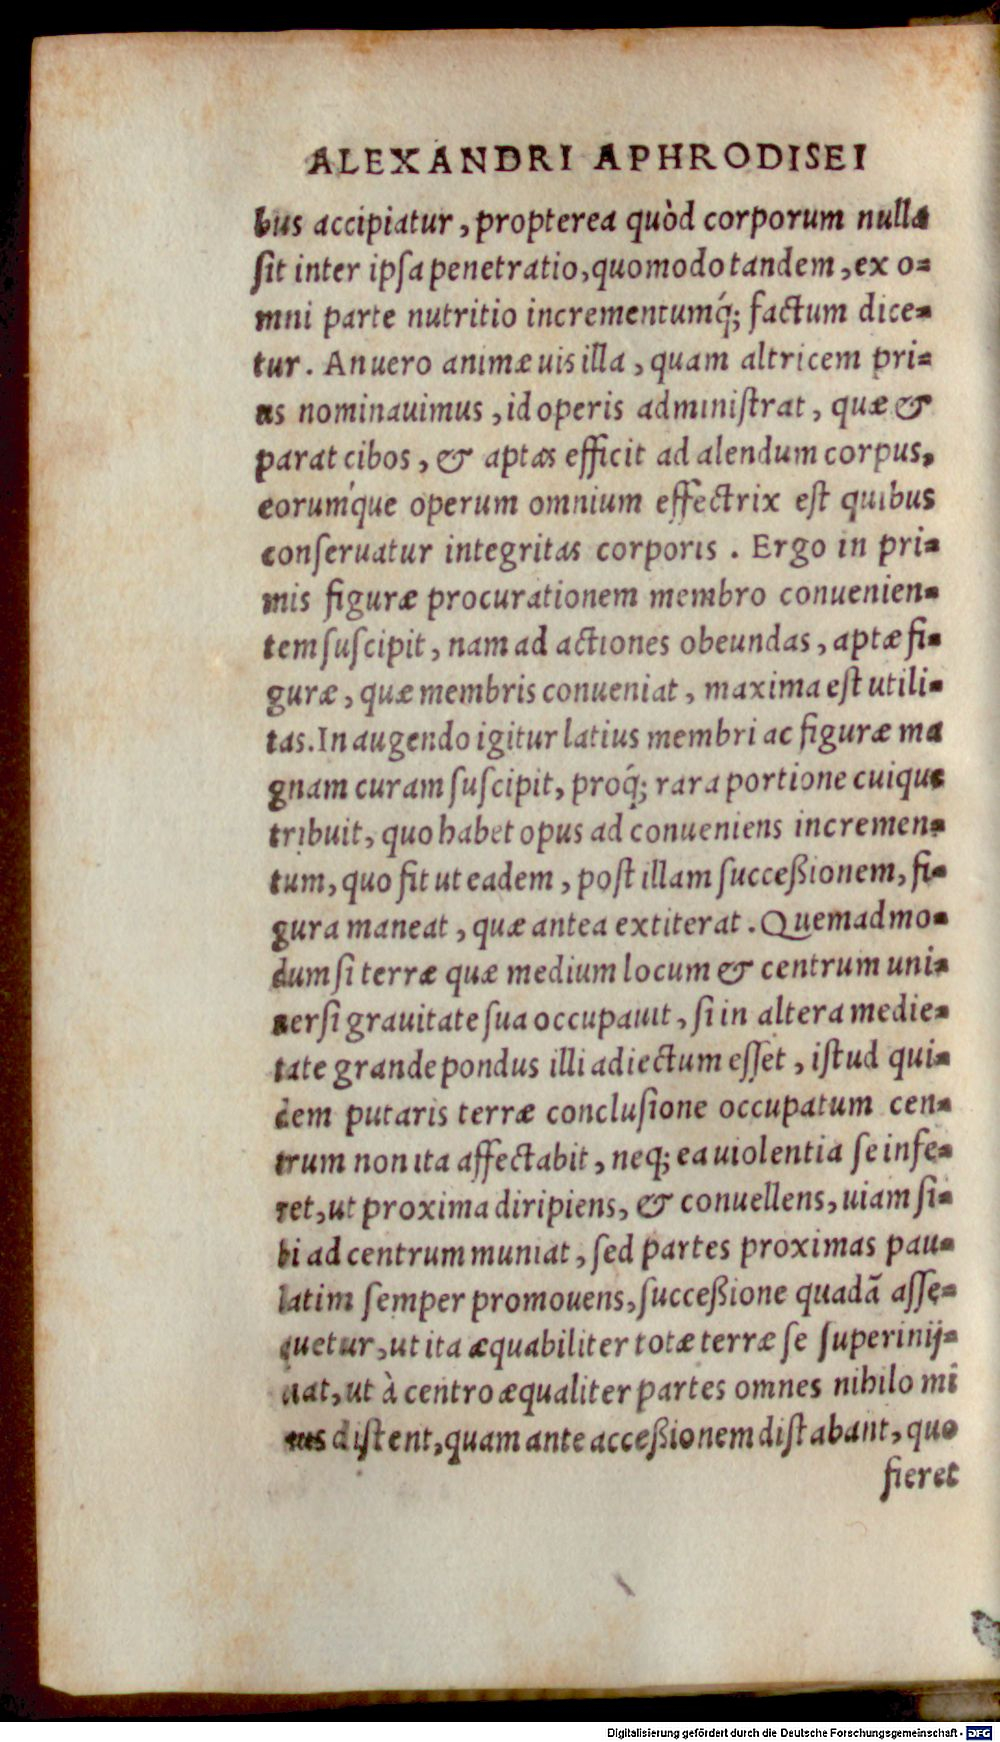 ALEXANDRI APHRODISEI
bus accipiatur, propterea quòd corporum nulla
ſit inter ipſa penetratio, quomodo tandem, ex o-
mni parte nutritio incrementumq́; factum dice-
tur. An uero animæ uis illa, quam altricem pri-
us nominauimus, id operis adminiſtrat, quæ &
parat cibos, & aptas efficit ad alendum corpus,
eoruḿque operum omnium effectrix eſt quibus
conſeruatur integritas corporis. Ergo in pri-
mis figuræ procurationem membro conuenien-
tem ſuſcipit, nam ad actiones obeundas, aptæ fi-
guræ, quæ membris conueniat, maxima eſt utili-
tas. In augendo igitur latius membri ac figuræ ma
gnam curam ſuſcipit, proq́; rara portione cuique
tribuit, quo habet opus ad conueniens incremen-
tum, quo fit ut eadem, poſt illam ſucceßionem, fi-
gura maneat, quæ antea extiterat. Quemadmo-
dum ſi terræ quæ medium locum & centrum uni-
uerſi grauitate ſua occupauit, ſi in altera medie-
tate grande pondus illi adiectum eſſet, iſtud qui-
dem putaris terræ concluſione occupatum cen-
trum non ita affectabit, neq; ea uiolentia ſe infe-
ret, ut proxima diripiens, & conuellens, uiam ſi-
bi ad centrum muniat, ſed partes proximas pau-
latim ſemper promouens, ſucceßione quadã aſſe-
quetur, ut ita æquabiliter totæ terræ ſe ſuperinij-
uat, ut à centro æqualiter partes omnes nihilo mi
nus diſtent, quam ante acceßionem diſtabant, quo
fieret
Digitalisierung gefördert durch die Deutsche Forschungsgemeinschaft - DFG